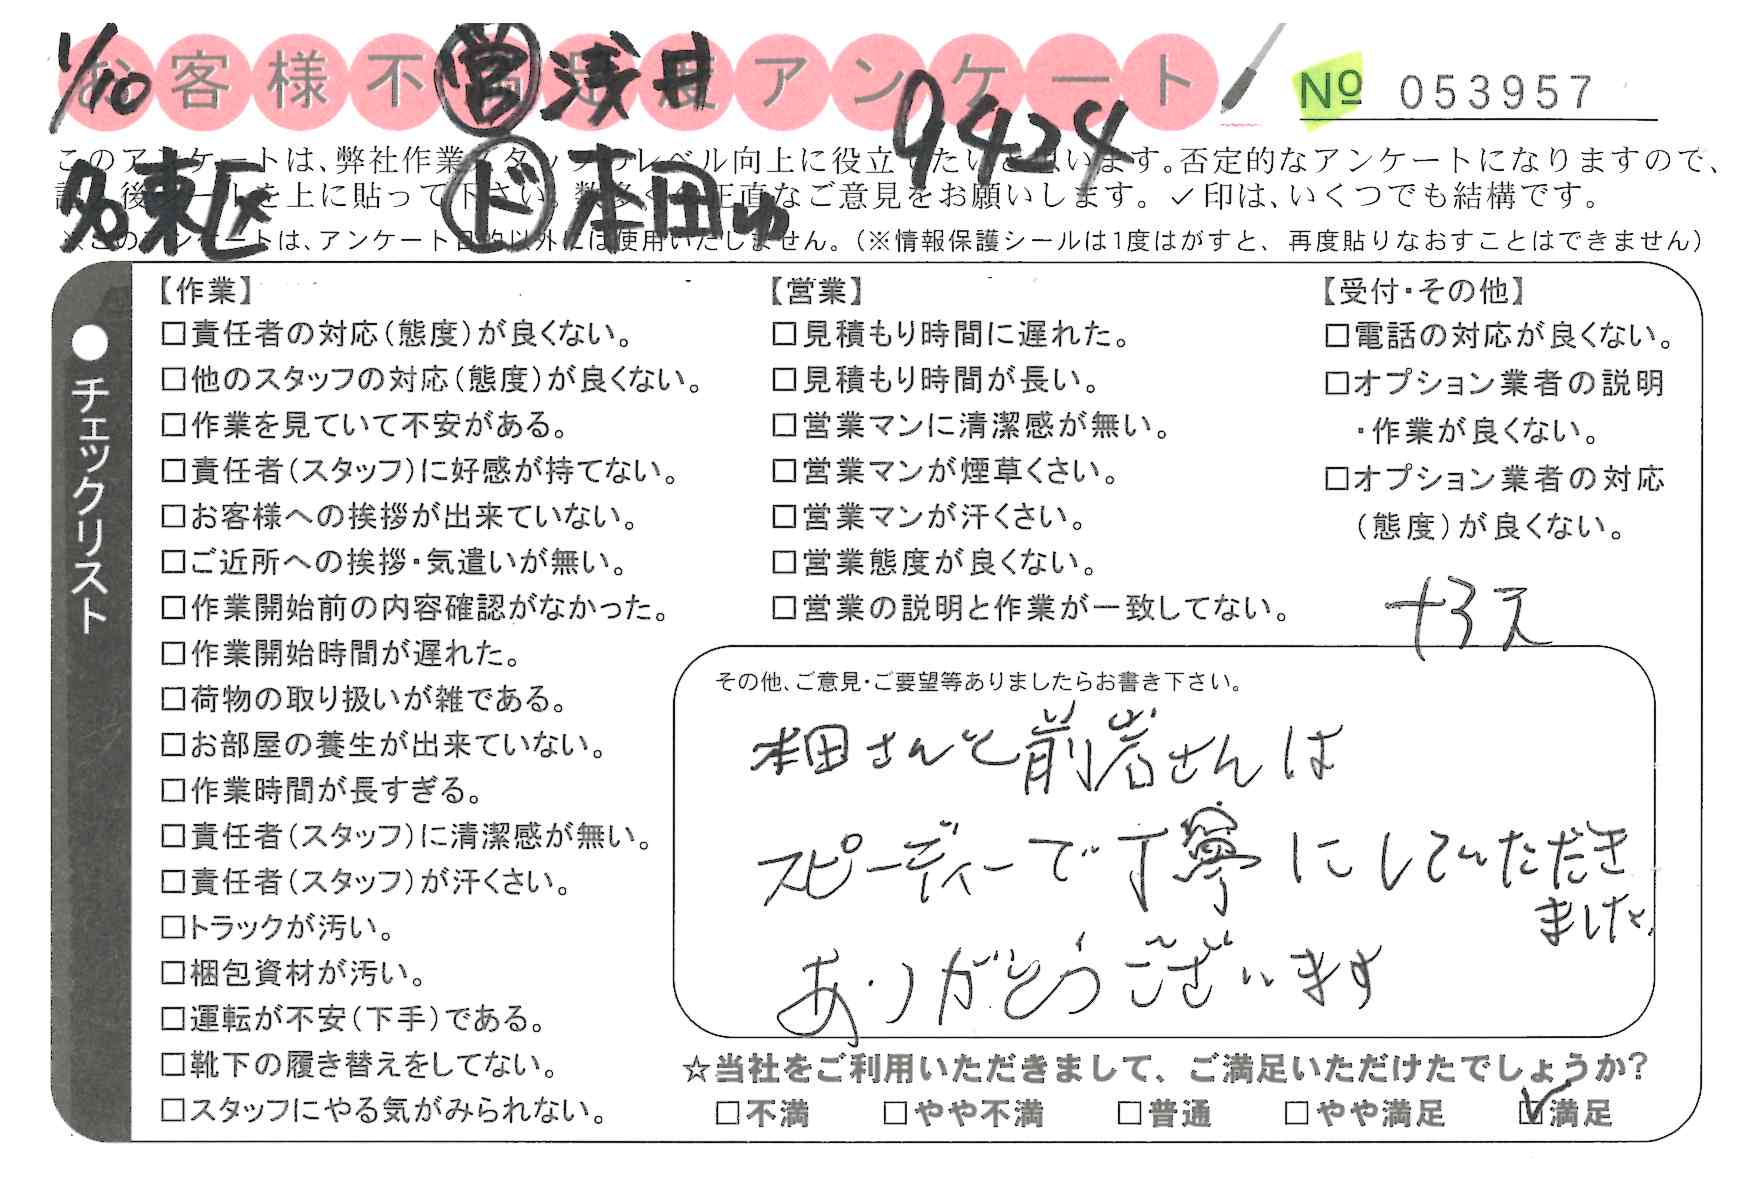 1/10
お客様不満足度アンケート
営 浅井
9424
№ 053957
このアンケートは、弊社作業スタッフのレベル向上に役立てたいと思います。否定的なアンケートになりますので、
後シートを上に貼って下さい。数多くの正直なご意見をお願いします。✓印は、いくつでも結構です。
名東区
ド 本田ゆ
※このアンケートは、アンケート目的以外には使用いたしません。(※情報保護シールは1度はがすと、再度貼りなおすことはできません)
●チェックリスト
【作業】
□責任者の対応(態度)が良くない。
□他のスタッフの対応(態度)が良くない。
□作業を見ていて不安がある。
□責任者(スタッフ)に好感が持てない。
□お客様への挨拶が出来ていない。
□ご近所への挨拶・気遣いが無い。
□作業開始前の内容確認がなかった。
□作業開始時間が遅れた。
□荷物の取り扱いが雑である。
□お部屋の養生が出来ていない。
□作業時間が長すぎる。
□責任者(スタッフ)に清潔感が無い。
□責任者(スタッフ)が汗くさい。
□トラックが汚い。
□梱包資材が汚い。
□運転が不安(下手)である。
□靴下の履き替えをしてない。
□スタッフにやる気がみられない。
【営業】
□見積もり時間に遅れた。
□見積もり時間が長い。
□営業マンに清潔感が無い。
□営業マンが煙草くさい。
□営業マンが汗くさい。
□営業態度が良くない。
□営業の説明と作業が一致してない。
【受付・その他】
□電話の対応が良くない。
□オプション業者の説明
・作業が良くない。
□オプション業者の対応
(態度)が良くない。
その他、ご意見・ご要望等ありましたらお書き下さい。
本田さんと前岩さんは
スピーディーで丁寧にしていただき
ました。
ありがとうございます
☆当社をご利用いただきまして、ご満足いただけたでしょうか?
□不満 □やや不満 □普通 □やや満足 ☑満足